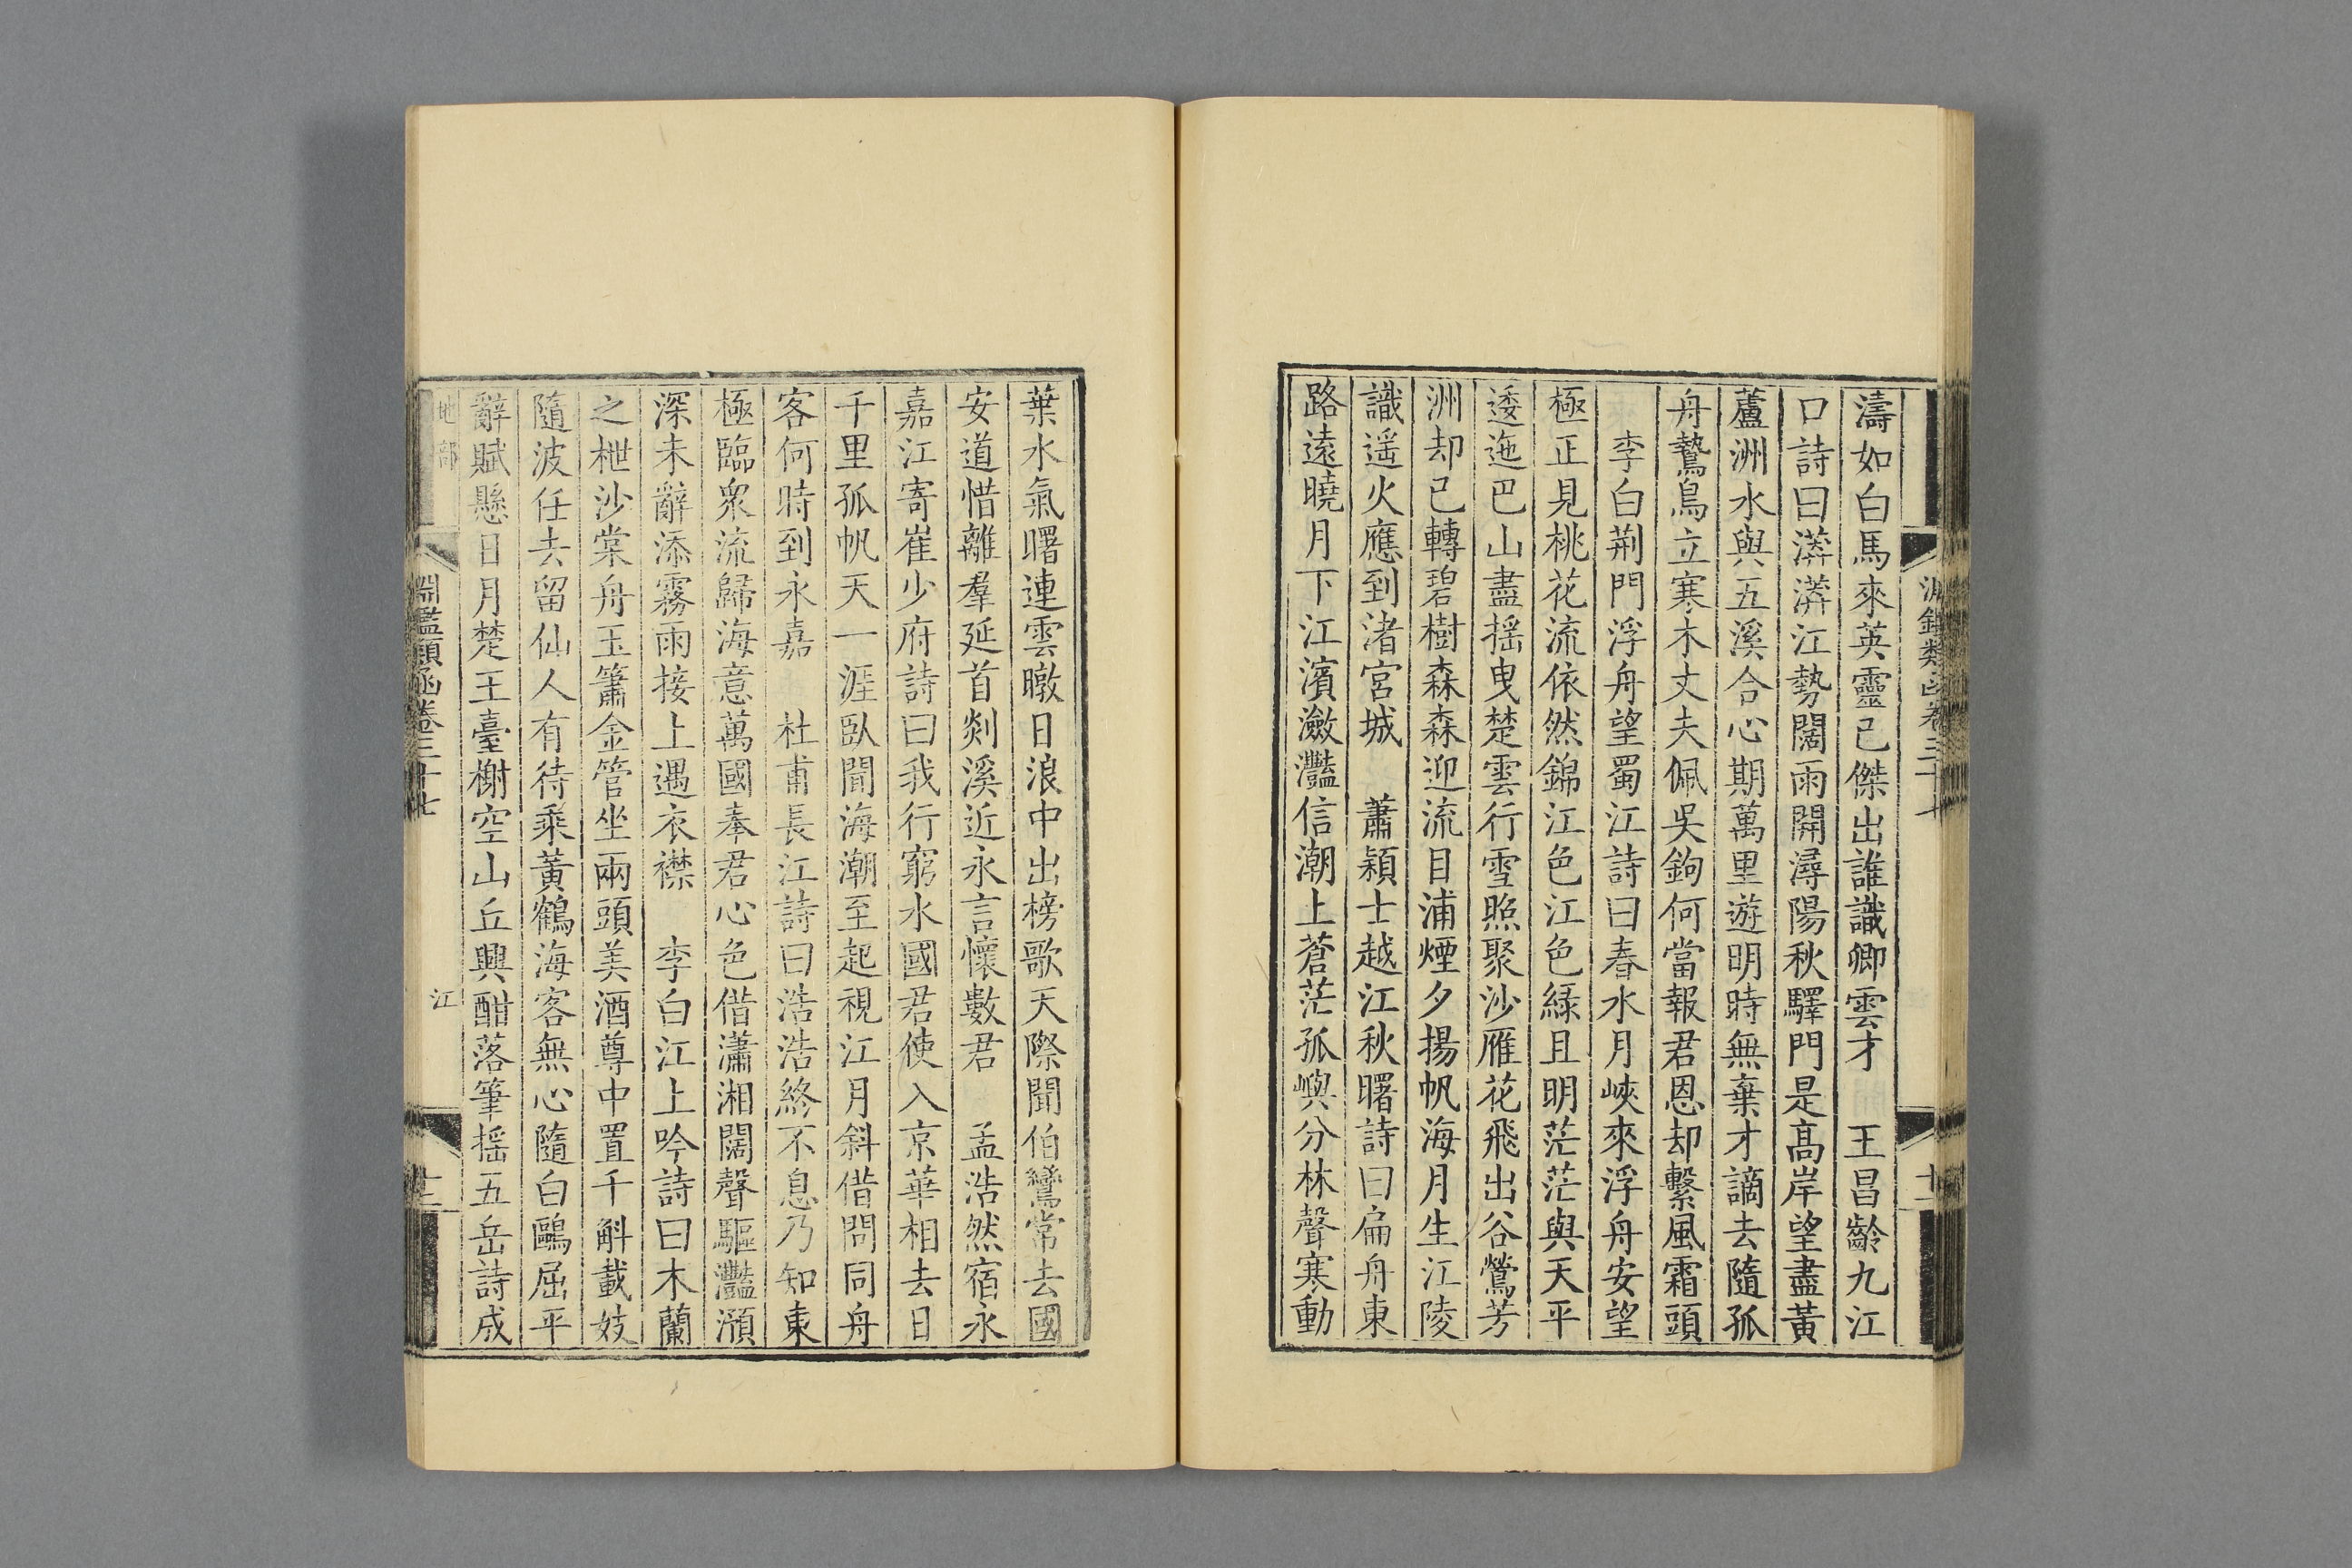 濤如白馬來英靈已傑出誰識卿雲才　王昌齡九江
口詩曰漭漭江勢闊雨開潯陽秋驛門是高岸望盡黃
蘆洲水與五溪合心期萬里遊明時無棄才謫去隨孤
舟鷙鳥立寒木丈夫佩吳鉤何當報君恩却繫風霜頭
李白荆門浮舟望蜀江詩曰春水月峽來浮舟安望
極正見桃花流依然錦江色江色緑且明茫茫與天平
逶迤巴山盡揺曳楚雲行雪照聚沙雁花飛出谷鶯芳
洲却已轉碧樹森森迎流目浦煙夕揚帆海月生江陵
識遥火應到渚宮城　蕭穎士越江秋曙詩曰扁舟東
路遠曉月下江濱瀲灩信潮上蒼茫孤嶼分林聲寒動
葉水氣曙連雲暾日浪中出榜歌天際聞伯鸞常去國
安道惜離羣延首剡溪近永言懷數君　孟浩然宿永
嘉江寄崔少府詩曰我行窮水國君使入京華相去日
千里孤帆天一涯臥聞海潮至起視江月斜借問同舟
客何時到永嘉　杜甫長江詩曰浩浩終不息乃知東
極臨衆流歸海意萬國奉君心色借瀟湘闊聲驅灩澦
深未辭添霧雨接上遇衣襟　李白江上吟詩曰木蘭
之枻沙棠舟玉簫金管坐兩頭美酒尊中置千斛載妓
隨波任去留仙人有待乘黃鶴海客無心隨白鷗屈平
辭賦懸日月楚王臺榭空山丘興酣落筆揺五岳詩成
地部
淵鑑類函卷三十七
江
十二